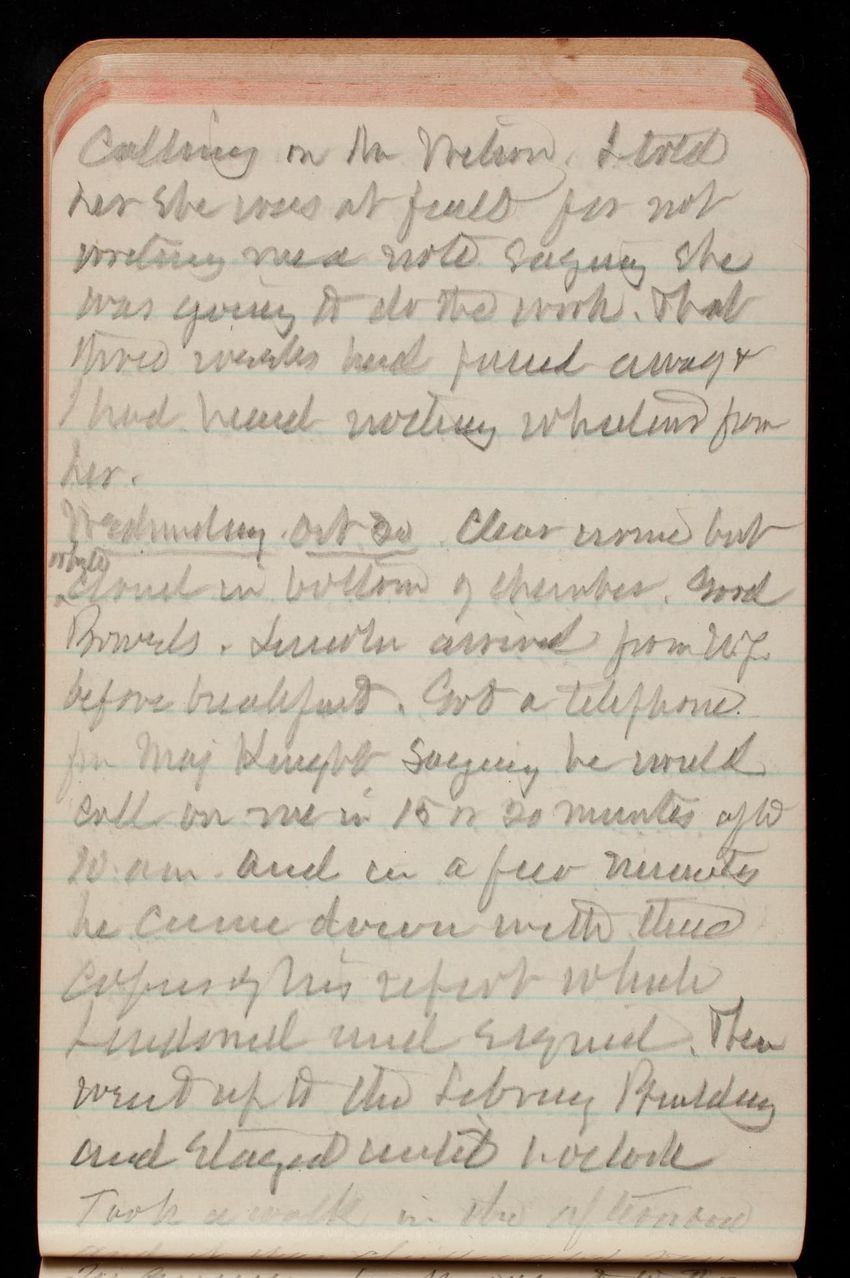 Calling on Dr Nelson. I told
her she was at fault for not
writing me a note saying she
was going to do the work. That
three weeks had passed away &
I had heard nothing whatever from
her.
Wednesday Oct 20 Clear urine but
white
cloud in bottom of chamber. Good
Bowels. Lincoln arrived from N.Y.
before breakfast. Got a telephone
from Maj Knight saying he would
call on me in 15 or 20 minutes after
10 am. and in a few minutes
he came down with three
copies of his report which
I endorsed and signed. Then
went up to the Library Building
and stayed until 1 oclock
Took a walk in the afternoon